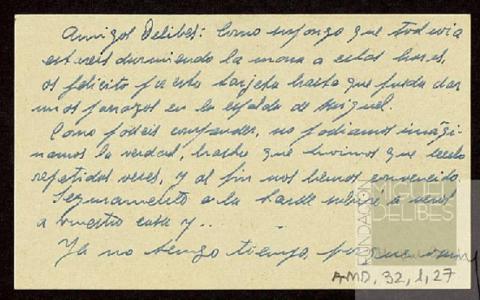 Amigos Delibes: Como supongo que todavia
esteis durmiendo la mona a estas horas,
os felicito por esta tarjeta hasta que pueda dar
unos porrazos en la espalda de Miguel.
Como podeis comprender, no podiamos imagi-
narnos la verdad, hasta que tuvimos que leerlo
repetidas veces, y al fin nos hemos convencido.
Seguramente a la tarde subiré a veros
a vuestra casa y...
Ya no tengo tiempo,
FUNDACIÓN
MIGUEL
DELIBES
AMD, 32, 1, 27